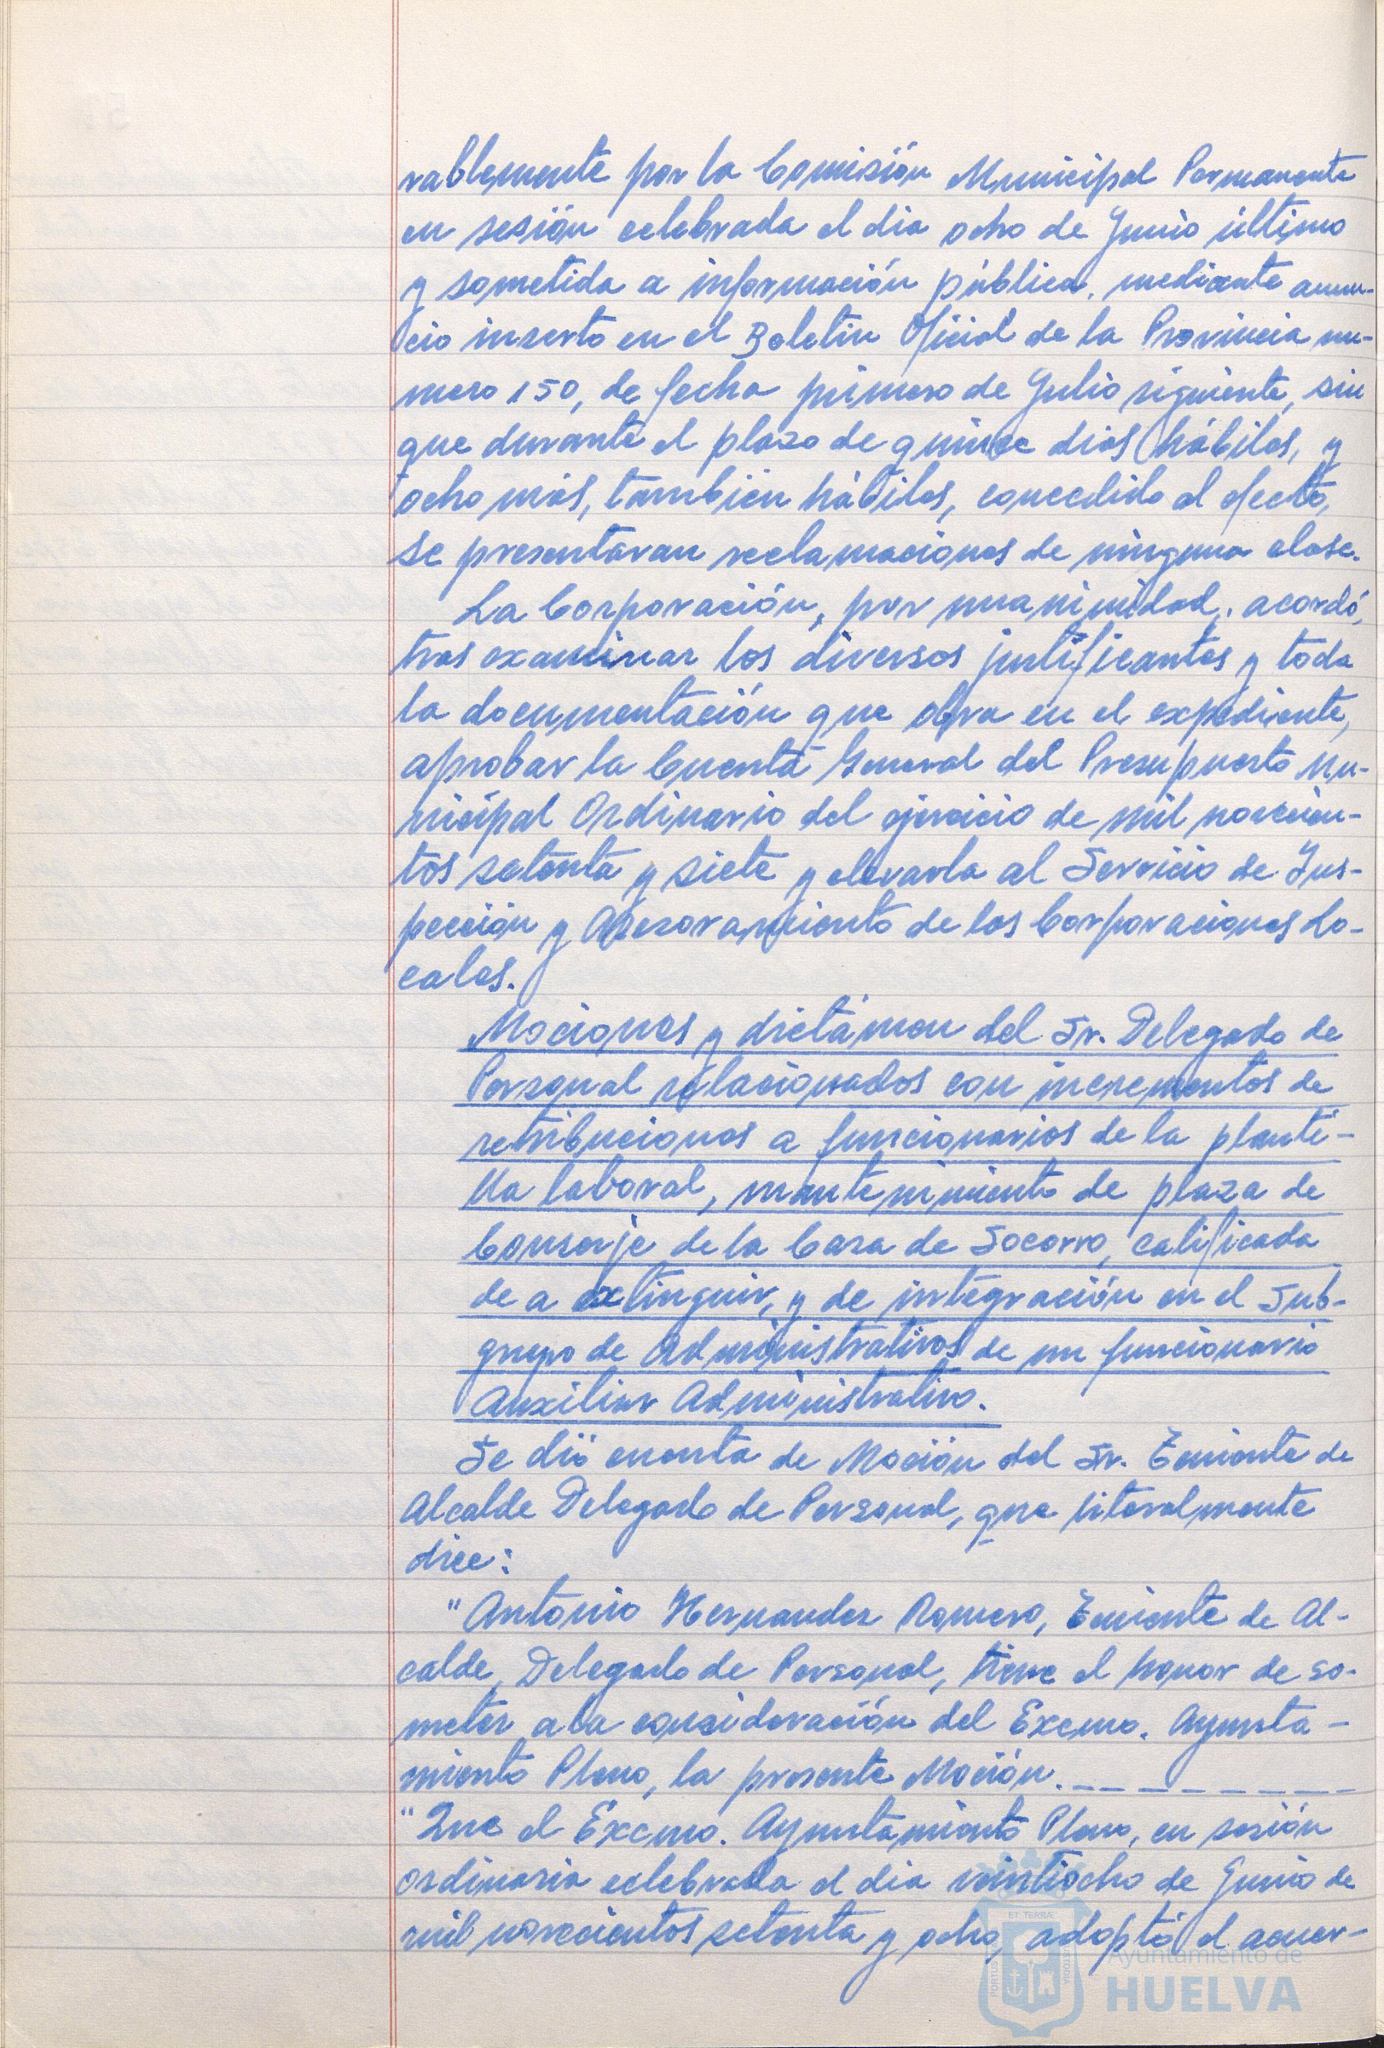 rablemente por la Comisión Municipal Permanente
en sesión celebrada el dia ocho de Junio último
y sometida a información pública, mediante anun-
cio inserto en el Boletin Oficial de la Provincia nu-
mero 150, de fecha primero de Julio siguiente, sin
que durante el plazo de quince dias hábiles, y
ocho más, también hábiles, concedido al efecto,
se presentaran reclamaciones de ninguna clase.
La Corporación, por unanimidad, acordó,
tras examinar los diversos justificantes y toda
la documentación que obra en el expediente,
aprobar la Cuenta General del Presupuesto Mu-
nicipal Ordinario del ejercicio de mil novecien-
tos setenta y siete y elevarla al Servicio de Ins-
pección y Asesoramiento de las Corporaciones Lo-
cales.
Mociones y dictámen del Sr. Delegado de
Personal relacionados con incrementos de
retribuciones a funcionarios de la planti-
lla laboral, mantenimiento de plaza de
Conserje de la Casa de Socorro, calificada
de a extinguir, y de integración en el Sub-
grupo de Administrativos de un funcionario
Auxiliar Administrativo.
Se dió cuenta de Moción del Sr. Teniente de
Alcalde Delegado de Personal, que literalmente
dice:
"Antonio Hernandez Romero, Teniente de Al-
calde, Delegado de Personal, tiene el honor de so-
meter a la consideración del Excmo. Ayunta-
miento Pleno, la presente Moción.
"Que el Excmo. Ayuntamiento Pleno, en sesión
ordinaria celebrada el dia veintiocho de Junio de
mil novecientos setenta y ocho, adoptó el acuer-
Ayuntamiento de
HUELVA